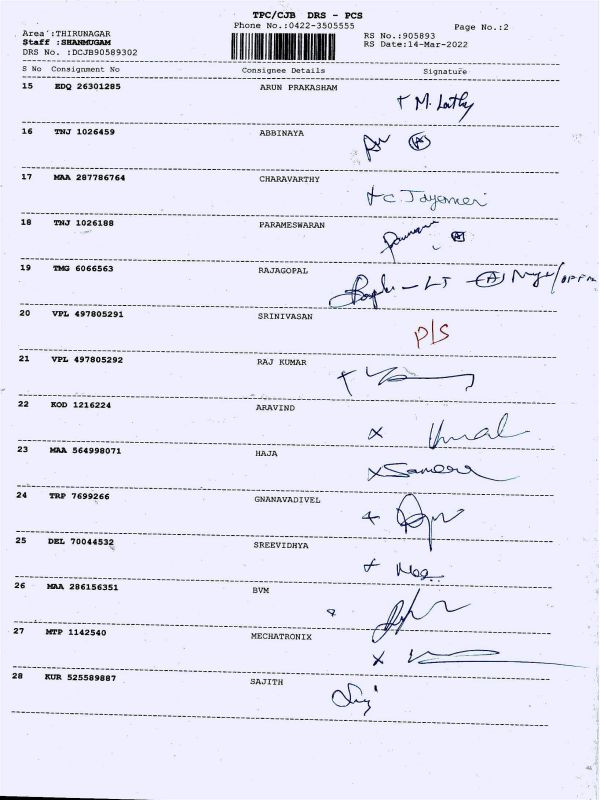 TPC/CJB DRS - PCS
Phone No.:0422-3505555 Page No.:2
Area :THIRUNAGAR RS No.:905893
Staff :SHANMUGAM RS Date:14-Mar-2022
DRS No. :DCJB90589302
S No Consignment No Consignee Details Signature
15 EDQ 26301285 ARUN PRAKASHAM
+ M. Lathy
16 TNJ 1026459 ABBINAYA
A
17 MAA 287786764 CHARAVARTHY
+ C. Jayamani
18 TNJ 1026188 PARAMESWARAN
A
19 TMG 6066563 RAJAGOPAL
A
20 VPL 497805291 SRINIVASAN
P/S
21 VPL 497805292 RAJ KUMAR
+
22 KOD 1216224 ARAVIND
x
23 MAA 564998071 HAJA
x
24 TRP 7699266 GNANAVADIVEL
+
25 DEL 70044532 SREEVIDHYA
+
26 MAA 286156351 BVM
27 MTP 1142540 MECHATRONIX
x
28 KUR 525589887 SAJITH